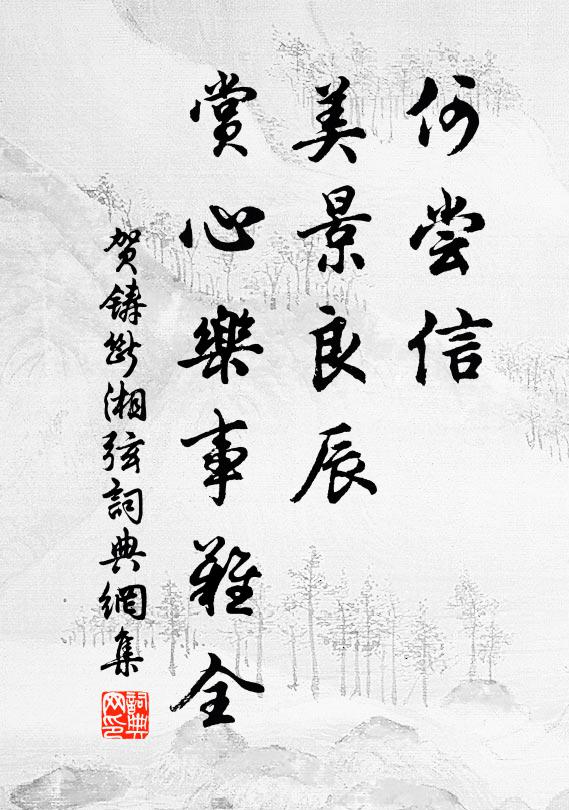 何尝信
美景良辰
赏心樂事難全
贺鑄断湘弦詞典網集
詞典网印